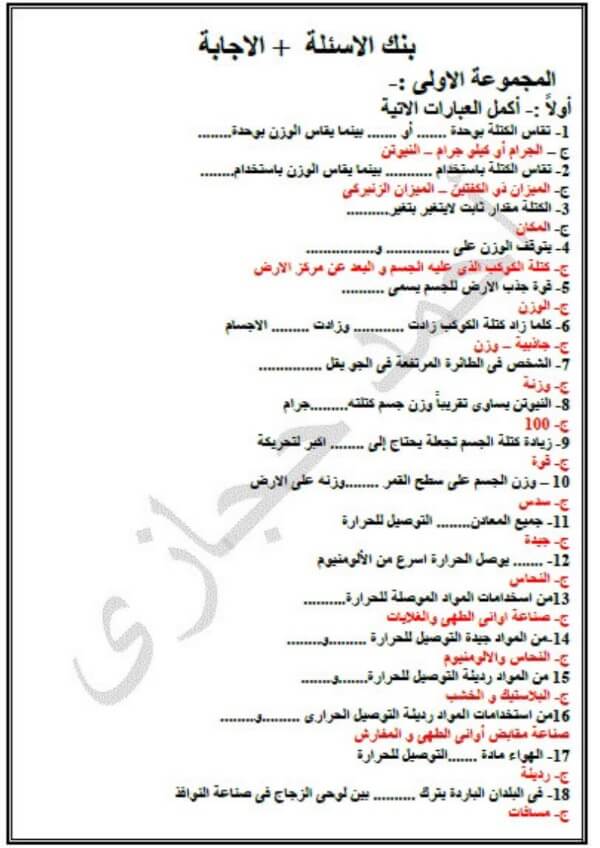 بنك الاسئلة + الاجابة
المجموعة الاولى :-
أولاً :- أكمل العبارات الاتية
1- تقاس الكتلة بوحدة ....... أو ....... بينما يقاس الوزن بوحدة........
ج – الجرام أو كيلو جرام – النيوتن
2- تقاس الكتلة باستخدام ........... بينما يقاس الوزن باستخدام........
ج- الميزان ذو الكفتين – الميزان الزنبركى
3- الكتلة مقدار ثابت لايتغير بتغير..........
ج- المكان
4- يتوقف الوزن على .............. و...............
ج- كتلة الكوكب الذى عليه الجسم و البعد عن مركز الارض
5- قوة جذب الارض للجسم يسمى ..........
ج- الوزن
6- كلما زاد كتلة الكوكب زادت ............ وزادت ......... الاجسام
ج- جاذبية – وزن
7- الشخص فى الطائرة المرتفعة فى الجو يقل ...............
ج- وزنة
8- النيوتن يساوى تقريباً وزن جسم كتلته.........جرام
ج- 100
9- زيادة كتلة الجسم تجعلة يحتاج إلى ........ اكبر لتحريكة
ج- قوة
10 – وزن الجسم على سطح القمر ........وزنه على الارض
ج- سدس
11- جميع المعادن........ التوصيل للحرارة
ج- جيدة
12- ....... يوصل الحرارة اسرع من الألومنيوم
ج- النحاس
13من اسخدامات المواد الموصلة للحرارة..........
ج- صناعة اوانى الطهى والغلايات
14-من المواد جيدة التوصيل للحرارة .........و........
ج- النحاس والالومنيوم
15 من المواد رديئة التوصيل للحرارة.......و.......
ج- البلاستيك و الخشب
16من استخدامات المواد رديئة التوصيل الحرارى .........و........
صناعة مقابض أوانى الطهى و المفارش
17- الهواء مادة .......التوصيل للحرارة
ج- رديئة
18- فى البلدان الباردة يترك .......... بين لوحى الزجاج فى صناعة النوافذ
ج- مسافات
أحمد حجازى